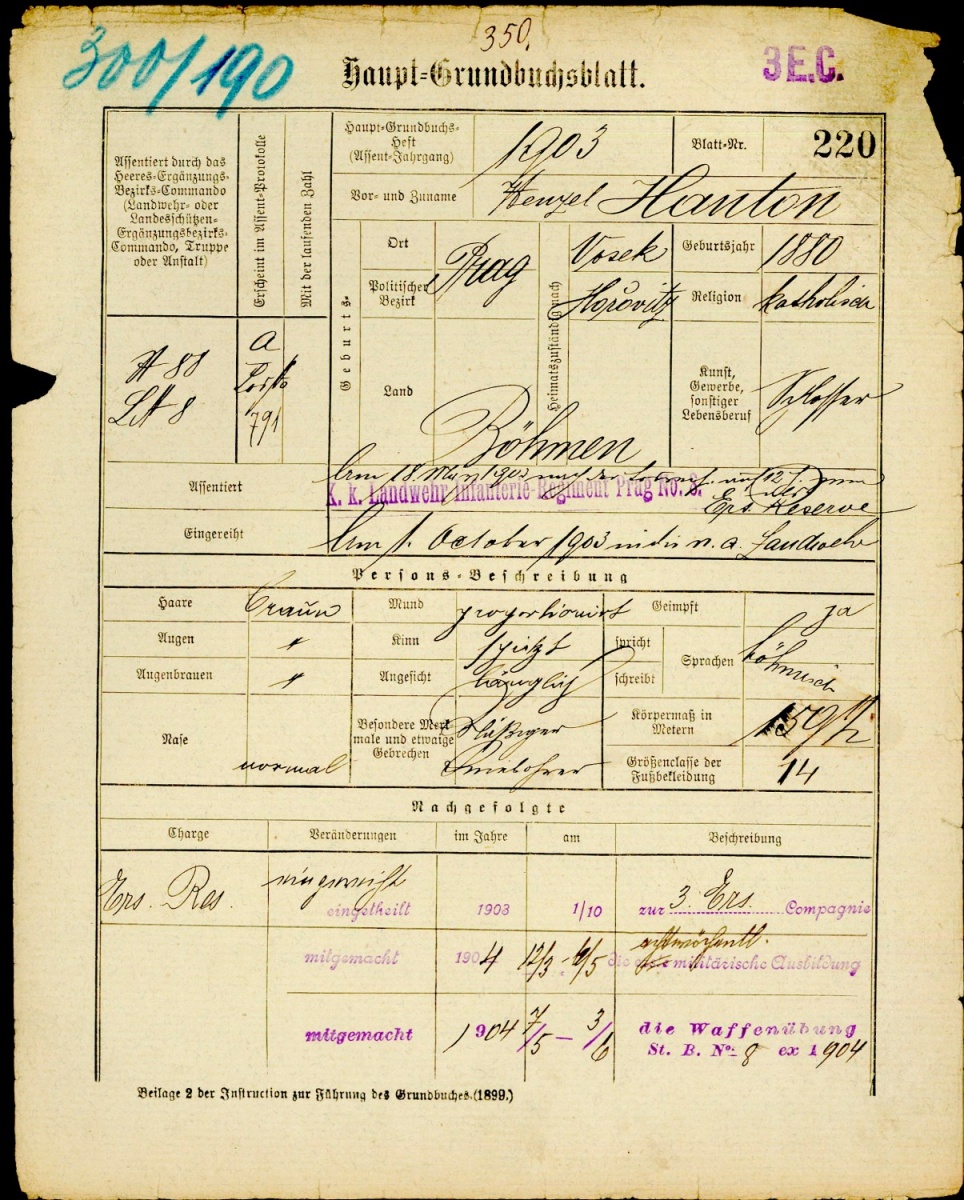 300/190
350.
Haupt-Grundbuchsblatt.
3 E.C.
Assentiert durch das
Heeres-Ergänzungs-
Bezirks-Commando
(Landwehr- oder
Landesschützen-
Ergänzungsbezirks-
Commando, Truppe
oder Anstalt)
Erscheint im Assent-Protokolle
Mit der laufenden Zahl
Haupt-Grundbuchs-
Heft
(Assent-Jahrgang)
1903
Blatt-Nr.
220
Vor- und Zuname
Wenzel Hanton
Geburts-
Ort
Politischer
Bezirk
Prag
Land
Böhmen
Heimatszuständig nach
Vosek
Hořovitz
Geburtsjahr
1880
Religion
katholisch
Kunst,
Gewerbe,
sonstiger
Lebensberuf
Schlosser
88
8
a
791
Assentiert
Am 18. 1903 auf 12 J.
K. k. Landwehr Infanterie Regiment Prag No. 8.
Ers. Reserve
Eingereiht
Am 1. October 1903 in die n. a. Landwehr
Persons-Beschreibung
Haare
braun
Mund
proportionirt
Geimpft
ja
Augen
"
Kinn
spitzt
spricht
schreibt
Sprachen
böhmisch
Augenbrauen
"
Angesicht
länglich
Nase
normal
Besondere Merk-
male und etwaige
Gebrechen
Körpermaß in
Metern
159 1/2
Größenclasse der
Fußbekleidung
14
Nachgefolgte
Charge
Veränderungen
im Jahre
am
Beschreibung
Ers. Res.
eingereiht
eingetheilt
1903
1/10
zur 3. Ers. Compagnie
achtwöchentl.
mitgemacht
1904
12/3 - 6/5
die militärische Ausbildung
mitgemacht
1904
7/5 - 3/6
die Waffenübung
St. B. No. 8 ex 1904
Beilage 2 der Instruction zur Führung des Grundbuches (1899.)